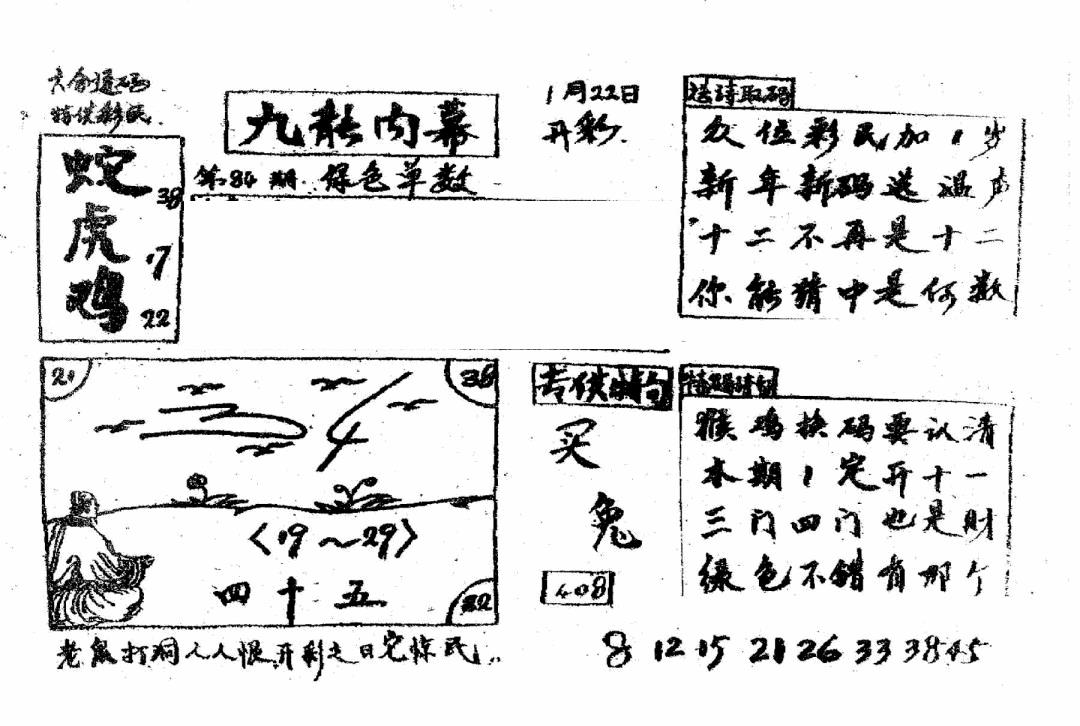 六合通码
特供彩民.
蛇 38
虎 17
鸡 22
九龙内幕
第84期. 绿色单数
1月22日
开彩.
送诗取码
众位彩民加1岁
新年新码送温声
十二不再是十二
你能猜中是何数
21
38
4
〈19～29〉
四十五
22
老鼠打洞人人恨,开彩之日定惊民...
专供特句
买
兔
408
特码诗句
猴鸡换码要认清
本期1定开十一
三门四门也是财
绿色不错有那个
8 12 15 21 26 33 38 45